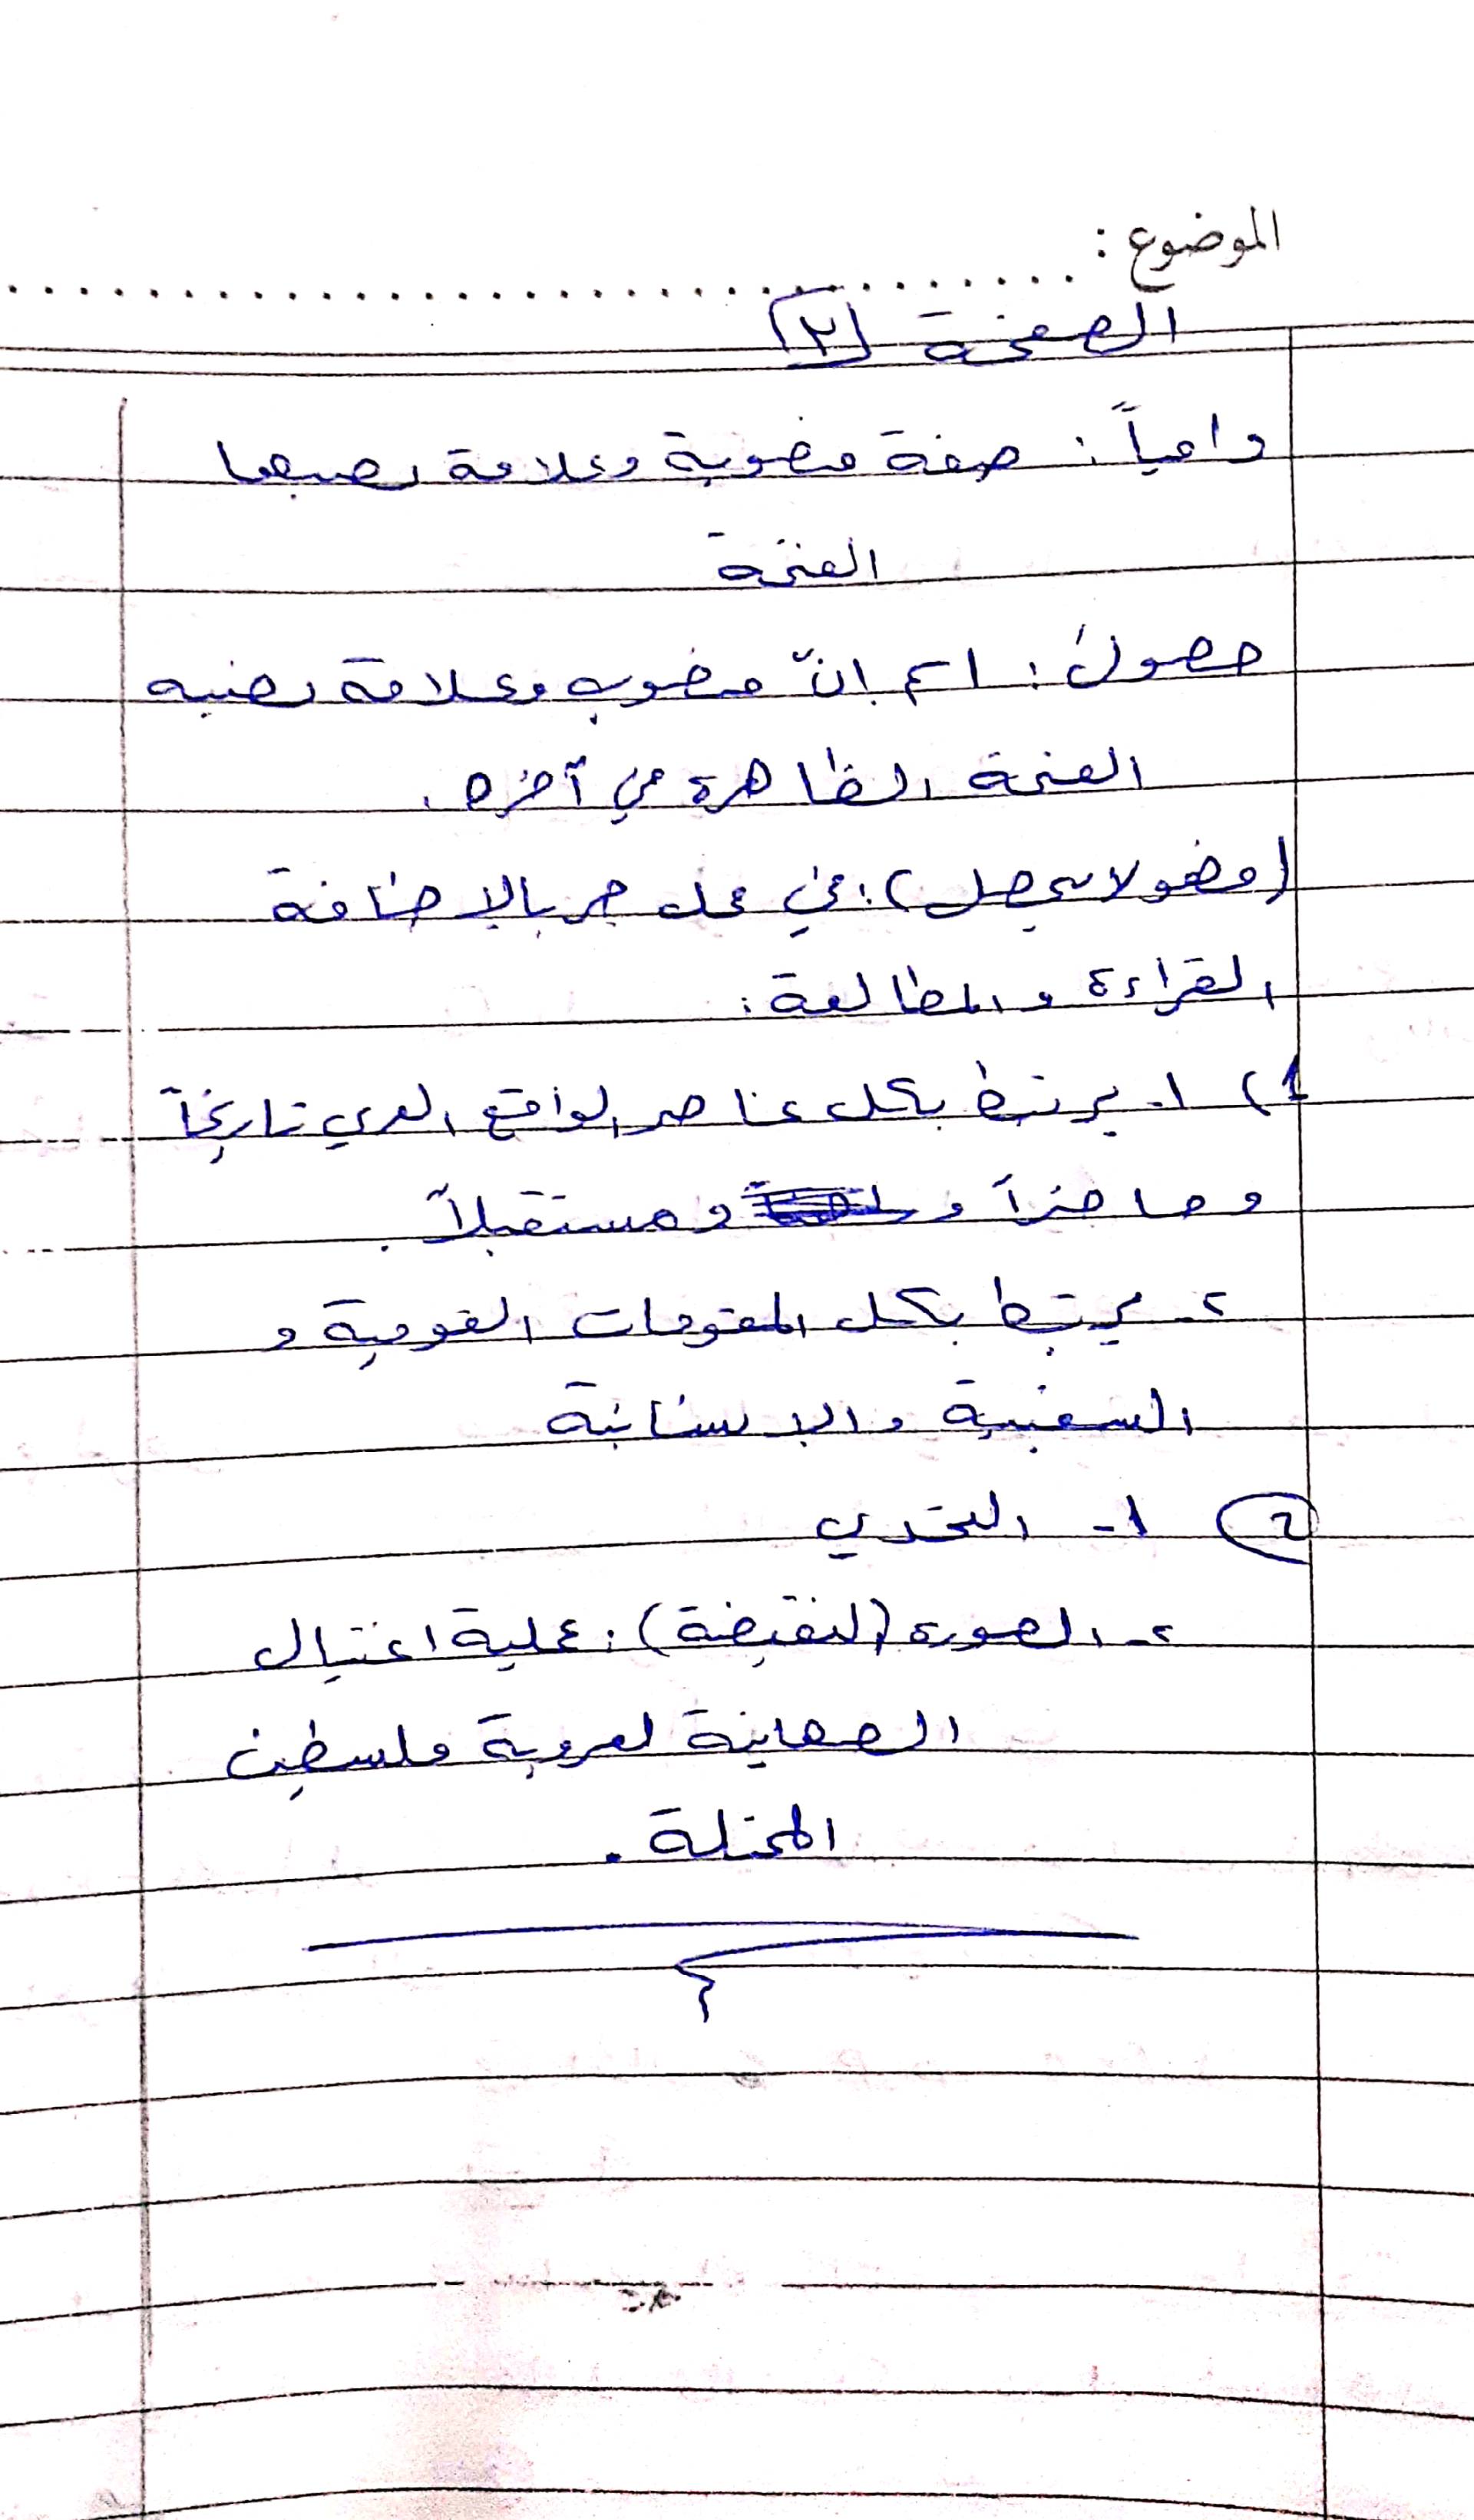 الموضوع :
الصفحة (٢)
داعياً : صفة منصوبة وعلامة نصبها
الفتحة
حصول : اسم إنّ منصوب وعلامة نصبه
الفتحة الظاهرة في آخره .
(فضولا سيحصل) : في محل جر بالإضافة
القراءة والمطالعة :
1) ١- يرتبط بكل عناصر الواقع العربي تاريخاً
وحاضراً و ومستقبلاً .
٢- يرتبط بكل المقومات القومية و
الشعبية والإنسانية
٢ ١- التحدي
٢- الصورة (النقيضة) : عملية اغتيال
الصهاينة لعروبة فلسطين
المحتلة .